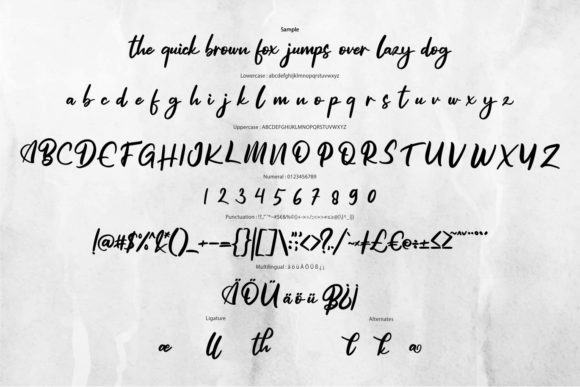 Sample
the quick brown fox jumps over lazy dog
Lowercase : abcdefghijklmnopqrstuvwxyz
a b c d e f g h i j k l m n o p q r s t u v w x y z
Uppercase : ABCDEFGHIJKLMNOPQRSTUVWXYZ
ABCDEFGHIJKLMNOPQRSTUVWXYZ
Numeral : 0123456789
1 2 3 4 5 6 7 8 9 0
Punctuation :
!@#$%^&*()_+-={}|[]\:;<>?,./
Multilingual : ä ö ü Ä Ö Ü ß ¿ ¡
ÄÖÜ äöü ß¿¡
Ligature Alternates
æ th